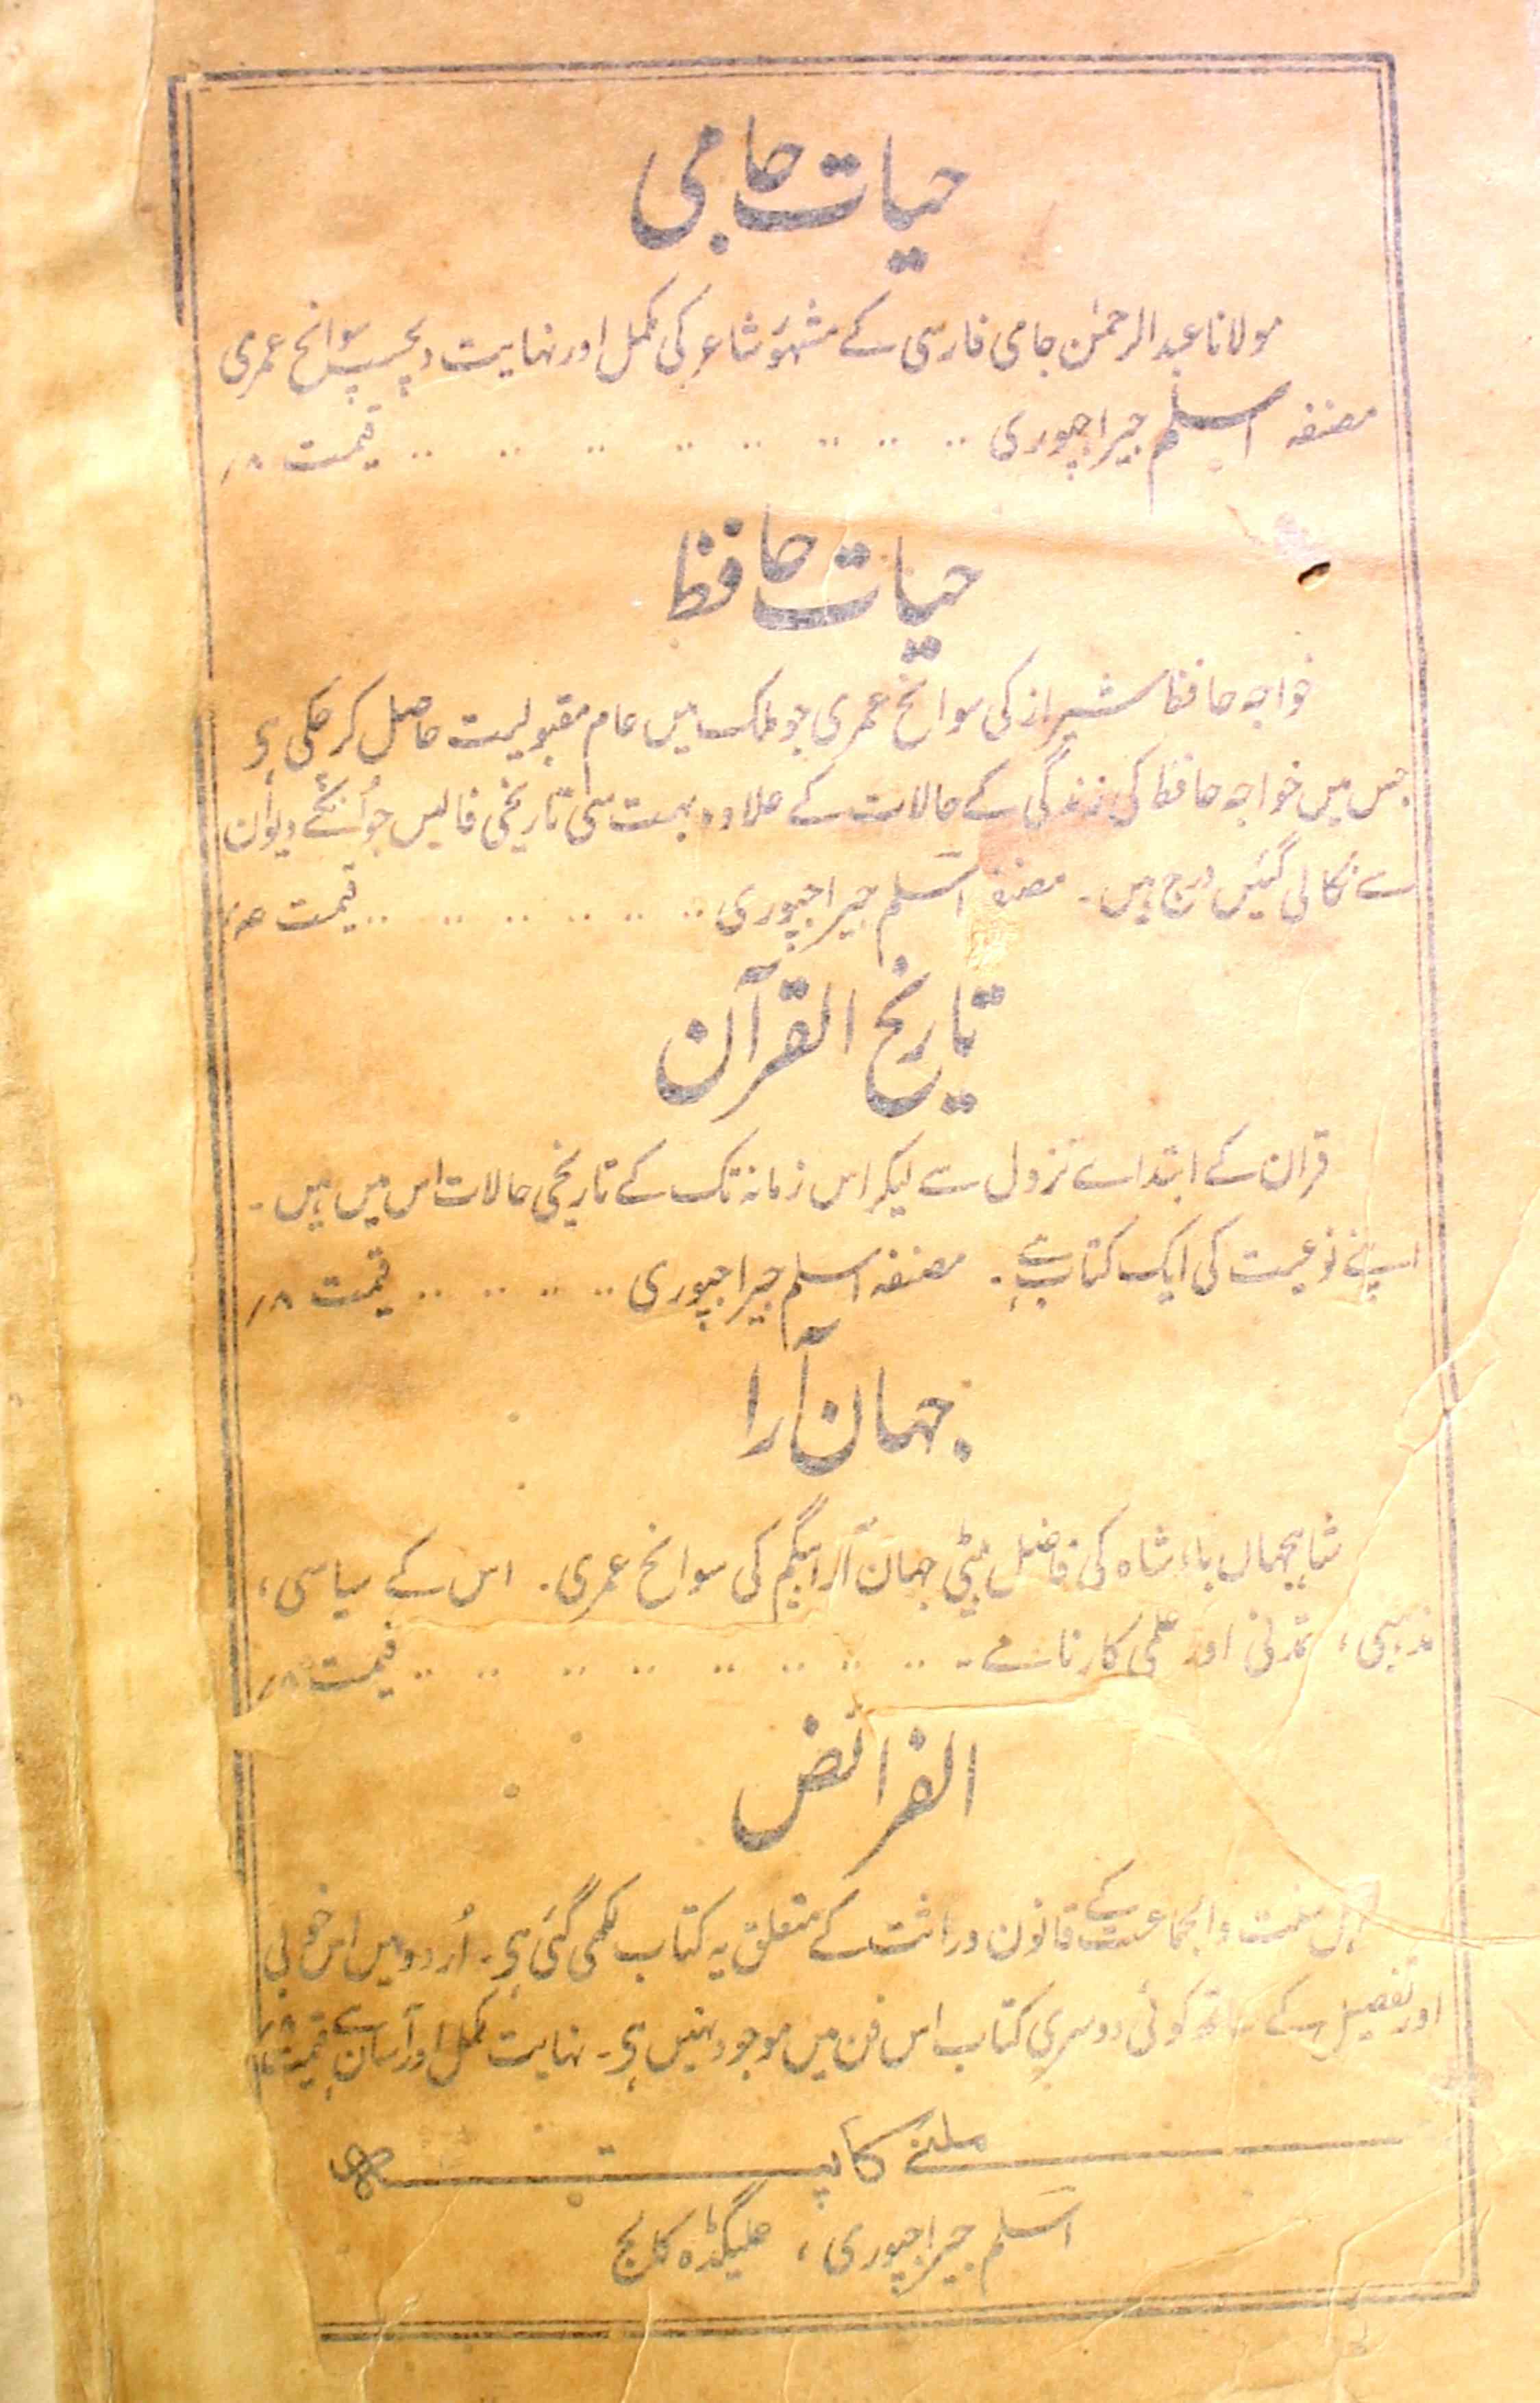 حیات جامی
مولانا عبدالرحمٰن جامی فارسی کے مشہور شاعر کی مکمل اور نہایت دلچسپ سوانح عمری
مصنفہ اسلم جیراجپوری .. .. .. .. .. .. .. .. .. قیمت ۸؍
حیات حافظ
خواجہ حافظ شیراز کی سوانح عمری جو ملک میں عام مقبولیت حاصل کر چکی ہی
جس میں خواجہ حافظ کی زندگی کے حالات کے علاوہ بہت سی تاریخی فالیں جو اُنکے دیوان
سے نکالی گئیں درج ہیں۔ مصنفہ اسلم جیراجپوری .. .. .. .. .. .. قیمت
تاریخ القرآن
قران کے ابتداے نزول سے لیکر اس زمانہ تک کے تاریخی حالات اس میں ہیں۔
اپنے نوعیت کی ایک کتاب ہے۔ مصنفہ اسلم جیراجپوری .. .. .. .. قیمت ۸؍
جہان آرا
شاہجہاں بادشاہ کی فاضل بیٹی جہان آرا بیگم کی سوانح عمری۔ اس کے سیاسی،
مذہبی، تمدنی اور علمی کارنامے۔ .. .. .. .. .. .. .. .. قیمت ۸؍
الفرائض
اہل سنت والجماعت کے قانون وراثت کے متعلق یہ کتاب لکھی گئی ہی۔ اُردو میں اس خوبی
اور تفصیل کے ساتھ کوئی دوسری کتاب اس فن میں موجود نہیں ہی۔ نہایت مکمل اور آسان ہے قیمت
ملنے کا پتہ
اسلم جیراجپوری، علیگڈہ کالج